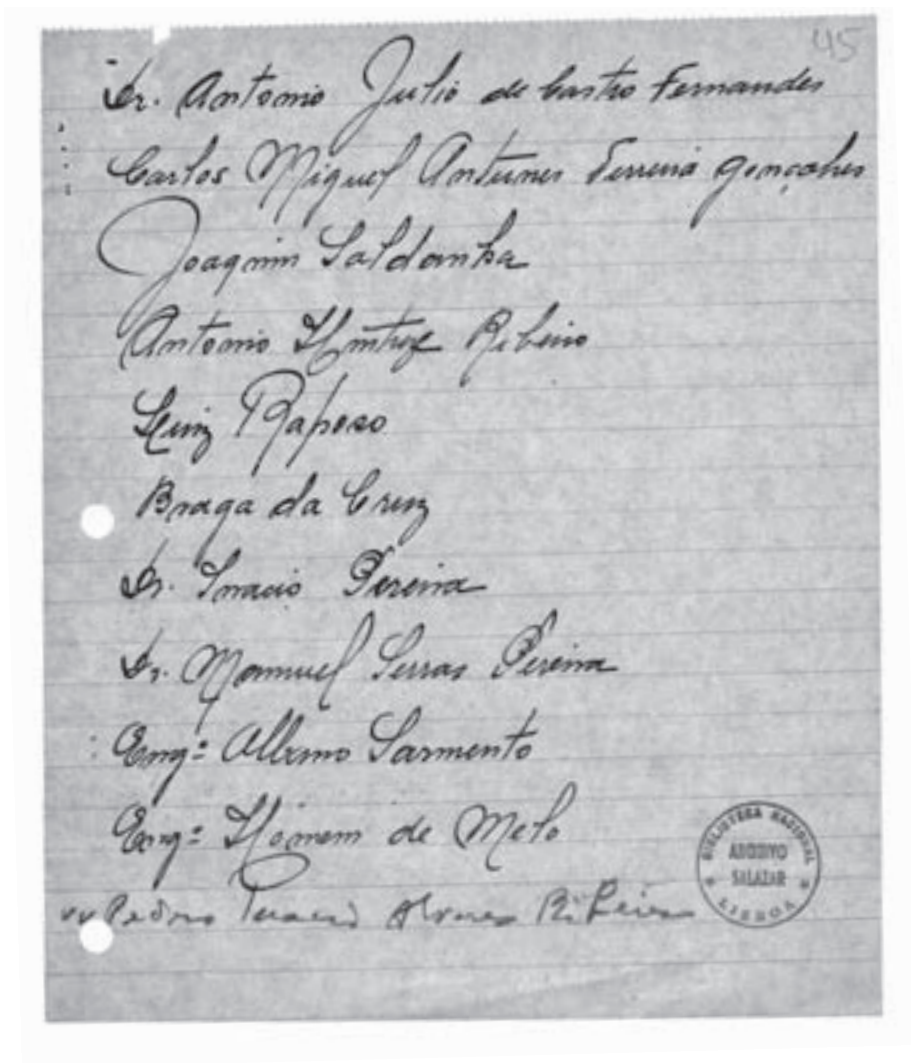 45
Dr. Antonio Julio de Castro Fernandes
Carlos Miguel Antunes Ferreira Gonçalves
Joaquim Saldanha
Antonio Ribeiro
Luiz Raposo
Braga da Cruz
Dr. Inacio Pereira
Dr. Manuel Serras Pereira
Engº Albino Sarmento
Engº Homem de Melo
vv Pedro Inacio Alvares Ribeiro
BIBLIOTECA NACIONAL
ARQUIVO
SALAZAR
LISBOA